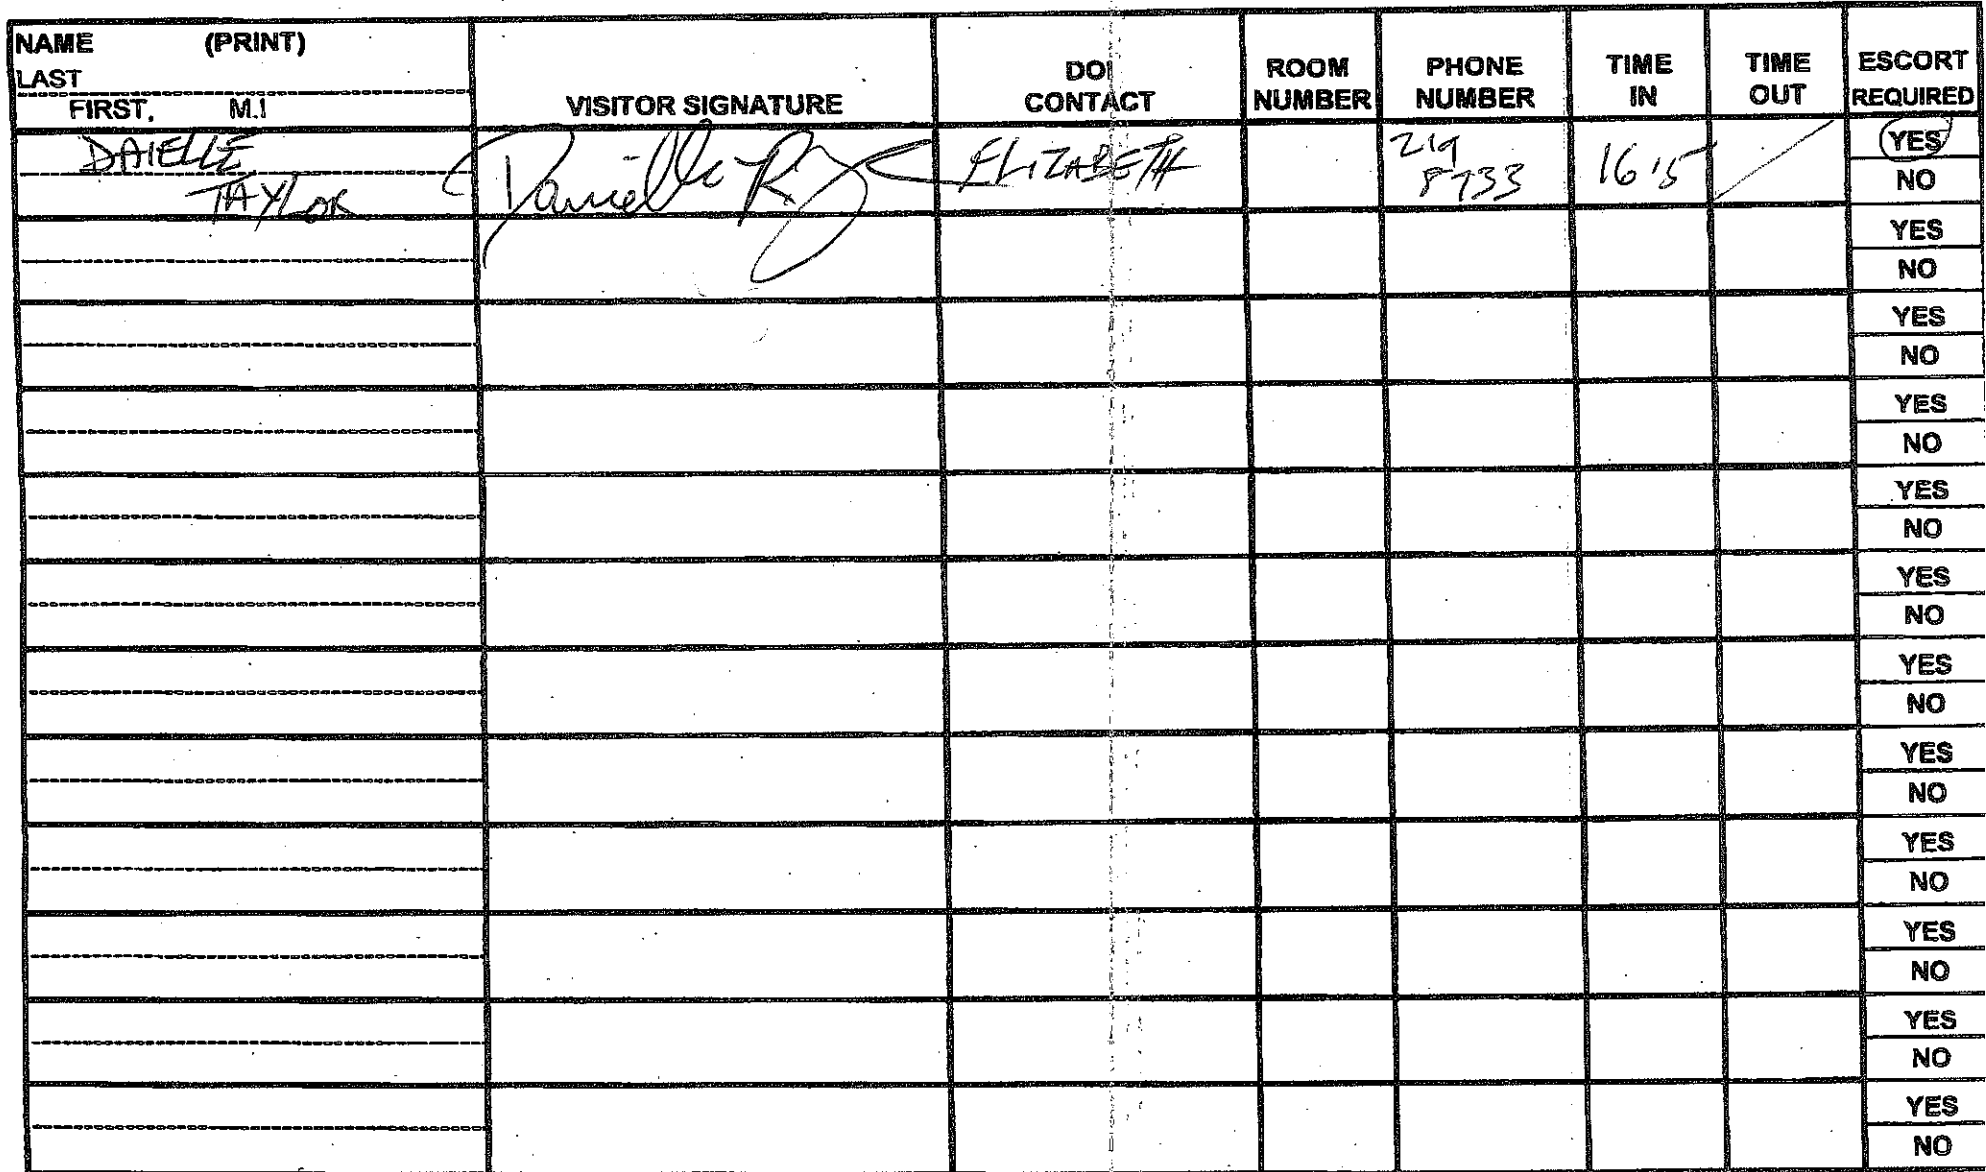 NAME (PRINT)
LAST
FIRST, M.I
VISITOR SIGNATURE
DOI
CONTACT
ROOM
NUMBER
PHONE
NUMBER
TIME
IN
TIME
OUT
ESCORT
REQUIRED
DAIELLE
TAYLOR
Danielle
ELIZABETH
219
8733
1615
YES
NO
YES
NO
YES
NO
YES
NO
YES
NO
YES
NO
YES
NO
YES
NO
YES
NO
YES
NO
YES
NO
YES
NO